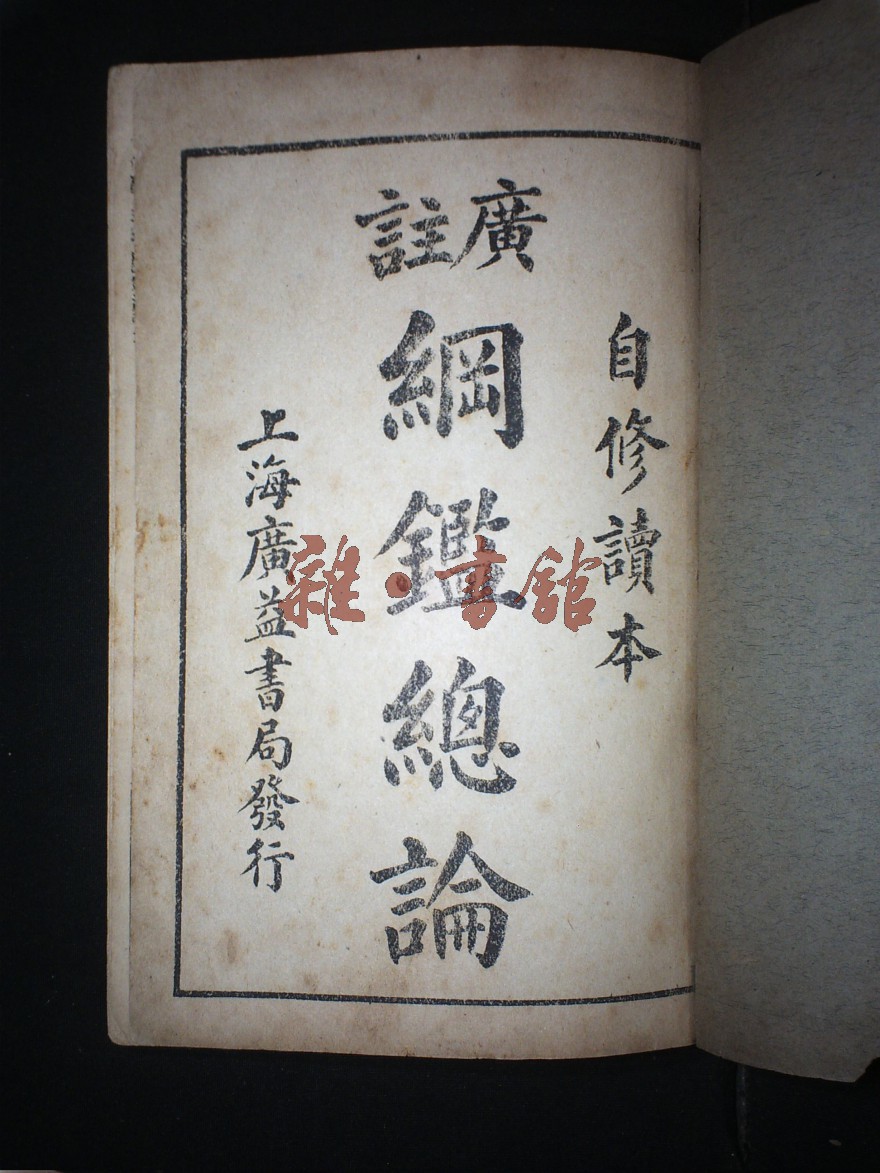 自修讀本
廣註
綱鑑總論
上海廣益書局發行
雜·書館